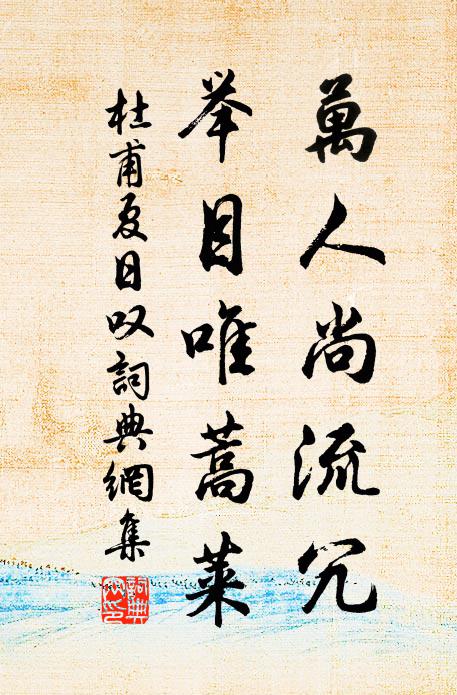 萬人尚流冗
举目唯蒿莱
杜甫夏日叹詞典網集